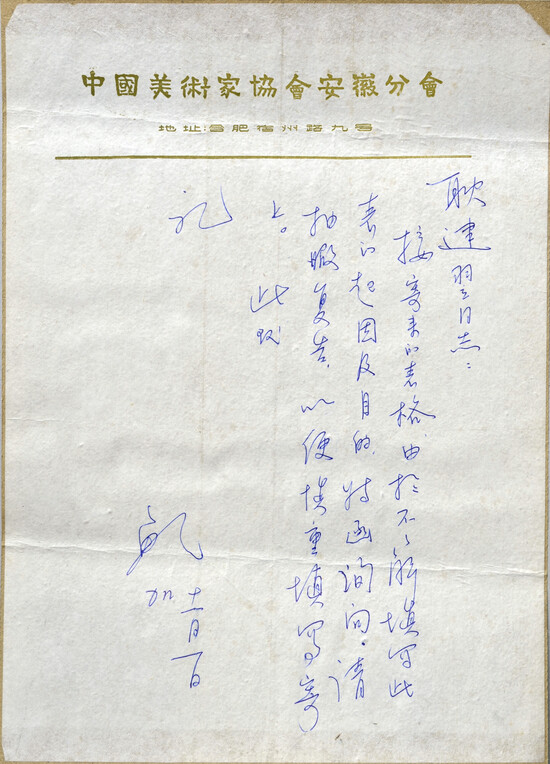 中國美術家協會安徽分會
地址:合肥宿州路九号
耿建翌同志:
接寄来的表格,由於不了解填写此
表的起因及目的,特函询问。请
抽暇复告,以便慎重填写寄
上。此致
礼
鲍加
十一月一日